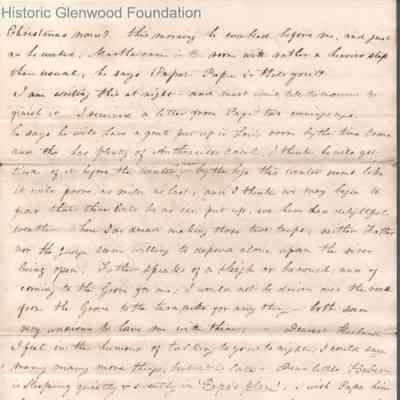 Historic Glenwood Foundation
Christmas now? this morning he waked before me, and just
as he waked, Martha came in the room with rather a heavier step
than usual, he says "Papa" Papa is that you?"
I am writing this at night - and must wait till tomorrow to
finish it I received a letter from Papa two evenings ago.
he says he will have a grate put up in Lou's room by the time
and she has plenty of Anthracite coal. I think he will get
tired of it before the winter by the by, this winter seems like
it will prove as mild as last, and I think we may begin to
fear that there will be no ice put up, we have had delightful
weather - how I do dread making those two trips; neither Father
nor the Judge seem willing to depend alone upon the river
being open. Father speaks of a sleigh or barouche, and of
coming to the Grove for me; I would not be driven over the road
from the Grove to the turnpike for any thing - both seem
very anxious to have me with them; - Dearest Husband
I feel in the humour of talking to you to night, I could say
many many more things, but it is late - Dear little
is sleeping quietly & sweetly in "Papa's place", I wish Papa